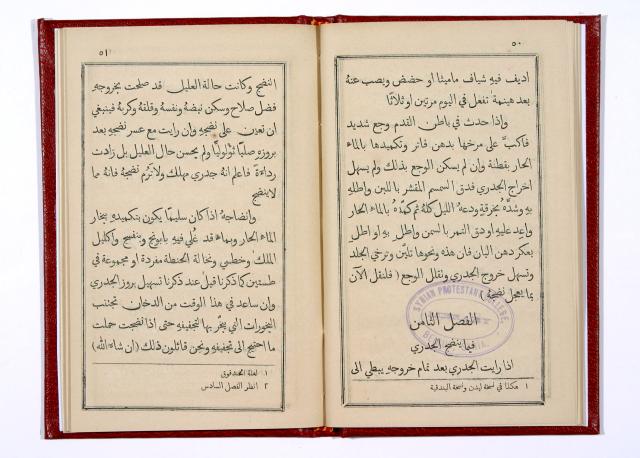 ٥٠
اديف فيهِ شياف ماميثا او حضض ويصب عنهُ
بعد هينمة تفعل في اليوم مرتين او ثلاثًا
واذا حدث في باطن القدم وجع شديد
فاكبَّ على مرخها بدهن فاتر وتكميدها بالماء
الحار بقطنة وان لم يسكن الوجع بذلك ولم يسهل
اخراج الجدري فدق السمسم المقشر باللبن واطلهِ
بهِ وشدَّهُ بخرقةٍ ودعهُ الليل كلهُ ثم كمدهُ بالماء الحار
واعد عليهِ او دق التمر بالسمن واطلِ بهِ او اطلِ
بعكر دهن البان فان هذه ونحوها تلين وترخي الجلد
وتسهل خروج الجدري وتقلل الوجع (فلنقل الآن
بما يعجل نضجهُ)
الفصل الثامن
فيما ينضج الجدري
اذا رايت الجدري بعد تمام خروجهِ يبطي الى
١ هكذا في نسخة ليدن ونسخة البندقية
SYRIAN PROTESTANT COLLEGE
٥١
النضج وكانت حالة العليل قد صلحت بخروجهِ
فضل صلاح وسكن نبضهُ ونفسهُ وقلقهُ وكربهُ فينبغي
ان تعين على نضجهِ وان رايت مع عسر نضجهِ بعد
بروزهِ صلبًا ثؤلوليًّا ولم يحسن حال العليل بل زادت
رداءةً فاعلم انهُ جدري مهلك ولا تَرُم نضجهُ فانهُ مما
لا ينضج
وانضاجهُ اذا كان سليمًا يكون بتكميدهِ ببخار
الماء الحار وبماء قد غُلي فيهِ بابونج وبنفسج واكليل
الملك وخطمي ونخالة الحنطة مفردة او مجموعة في
طستين كما ذكرنا قبلُ عند ذكرنا تسهيل بروز الجدري
وان ساعد في هذا الوقت من الدخان تجتنب
البخورات التي يبخَّر بها لتجفيفهِ حتى اذا نضجت حملت
ما احتيج الى تجفيفهِ ونحن قائلون ذلك (ان شاء الله)
٢ انظر الفصل السادس